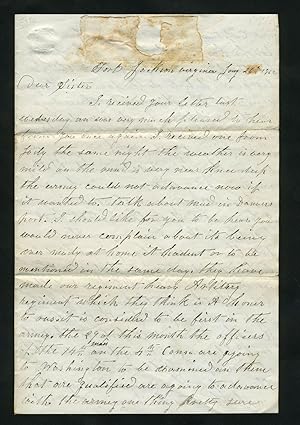 Fort Jackson virginia Jany 26th 1862
Dear Sister
I recived your letter last
wedesday an was very much pleased to hear
from you once again I received one from
Jody the same night the weather is very
mild an the mud is very near knee deep
the army could not advance now if
it wanted to, talk about mud in
port. I should like for you to be here you
would never complain about its being
ever mudy at home it beadent on to be
mentioned in the same day, they have
made our regiment heavy Artillery
regiment which they think is A honer
to us as it is considerd to be first in the
army, the 29 of this month the officers
of the 14th maa an the 4th Conn are going
to Washington to be examined an them
that are qualified are agoing to advance
with the army one thing pretty sure